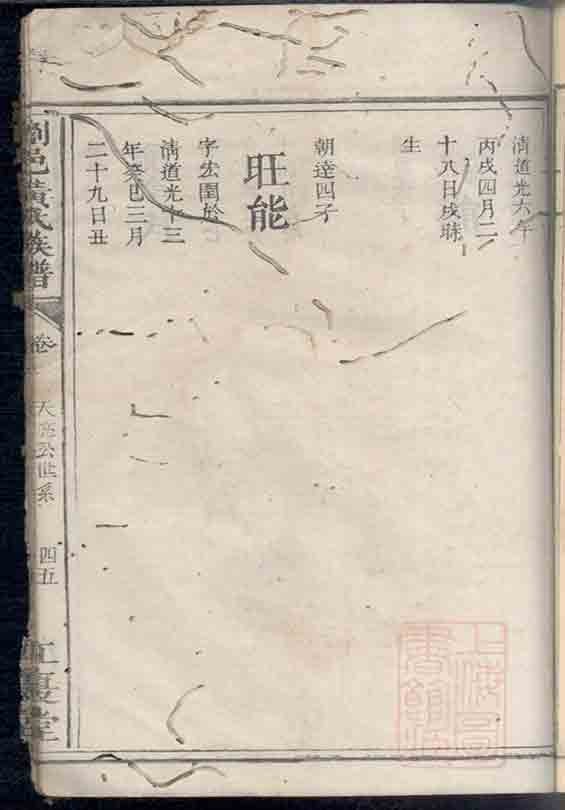 清道光六年
丙戌四月二
十八日戌時
生
朝達四子
旺能
字宏圍於
清道光十三
年癸巳三月
二十九日丑
瀏邑黃氏族譜
卷
天 公世系
四五
江夏堂
上海圖書館藏